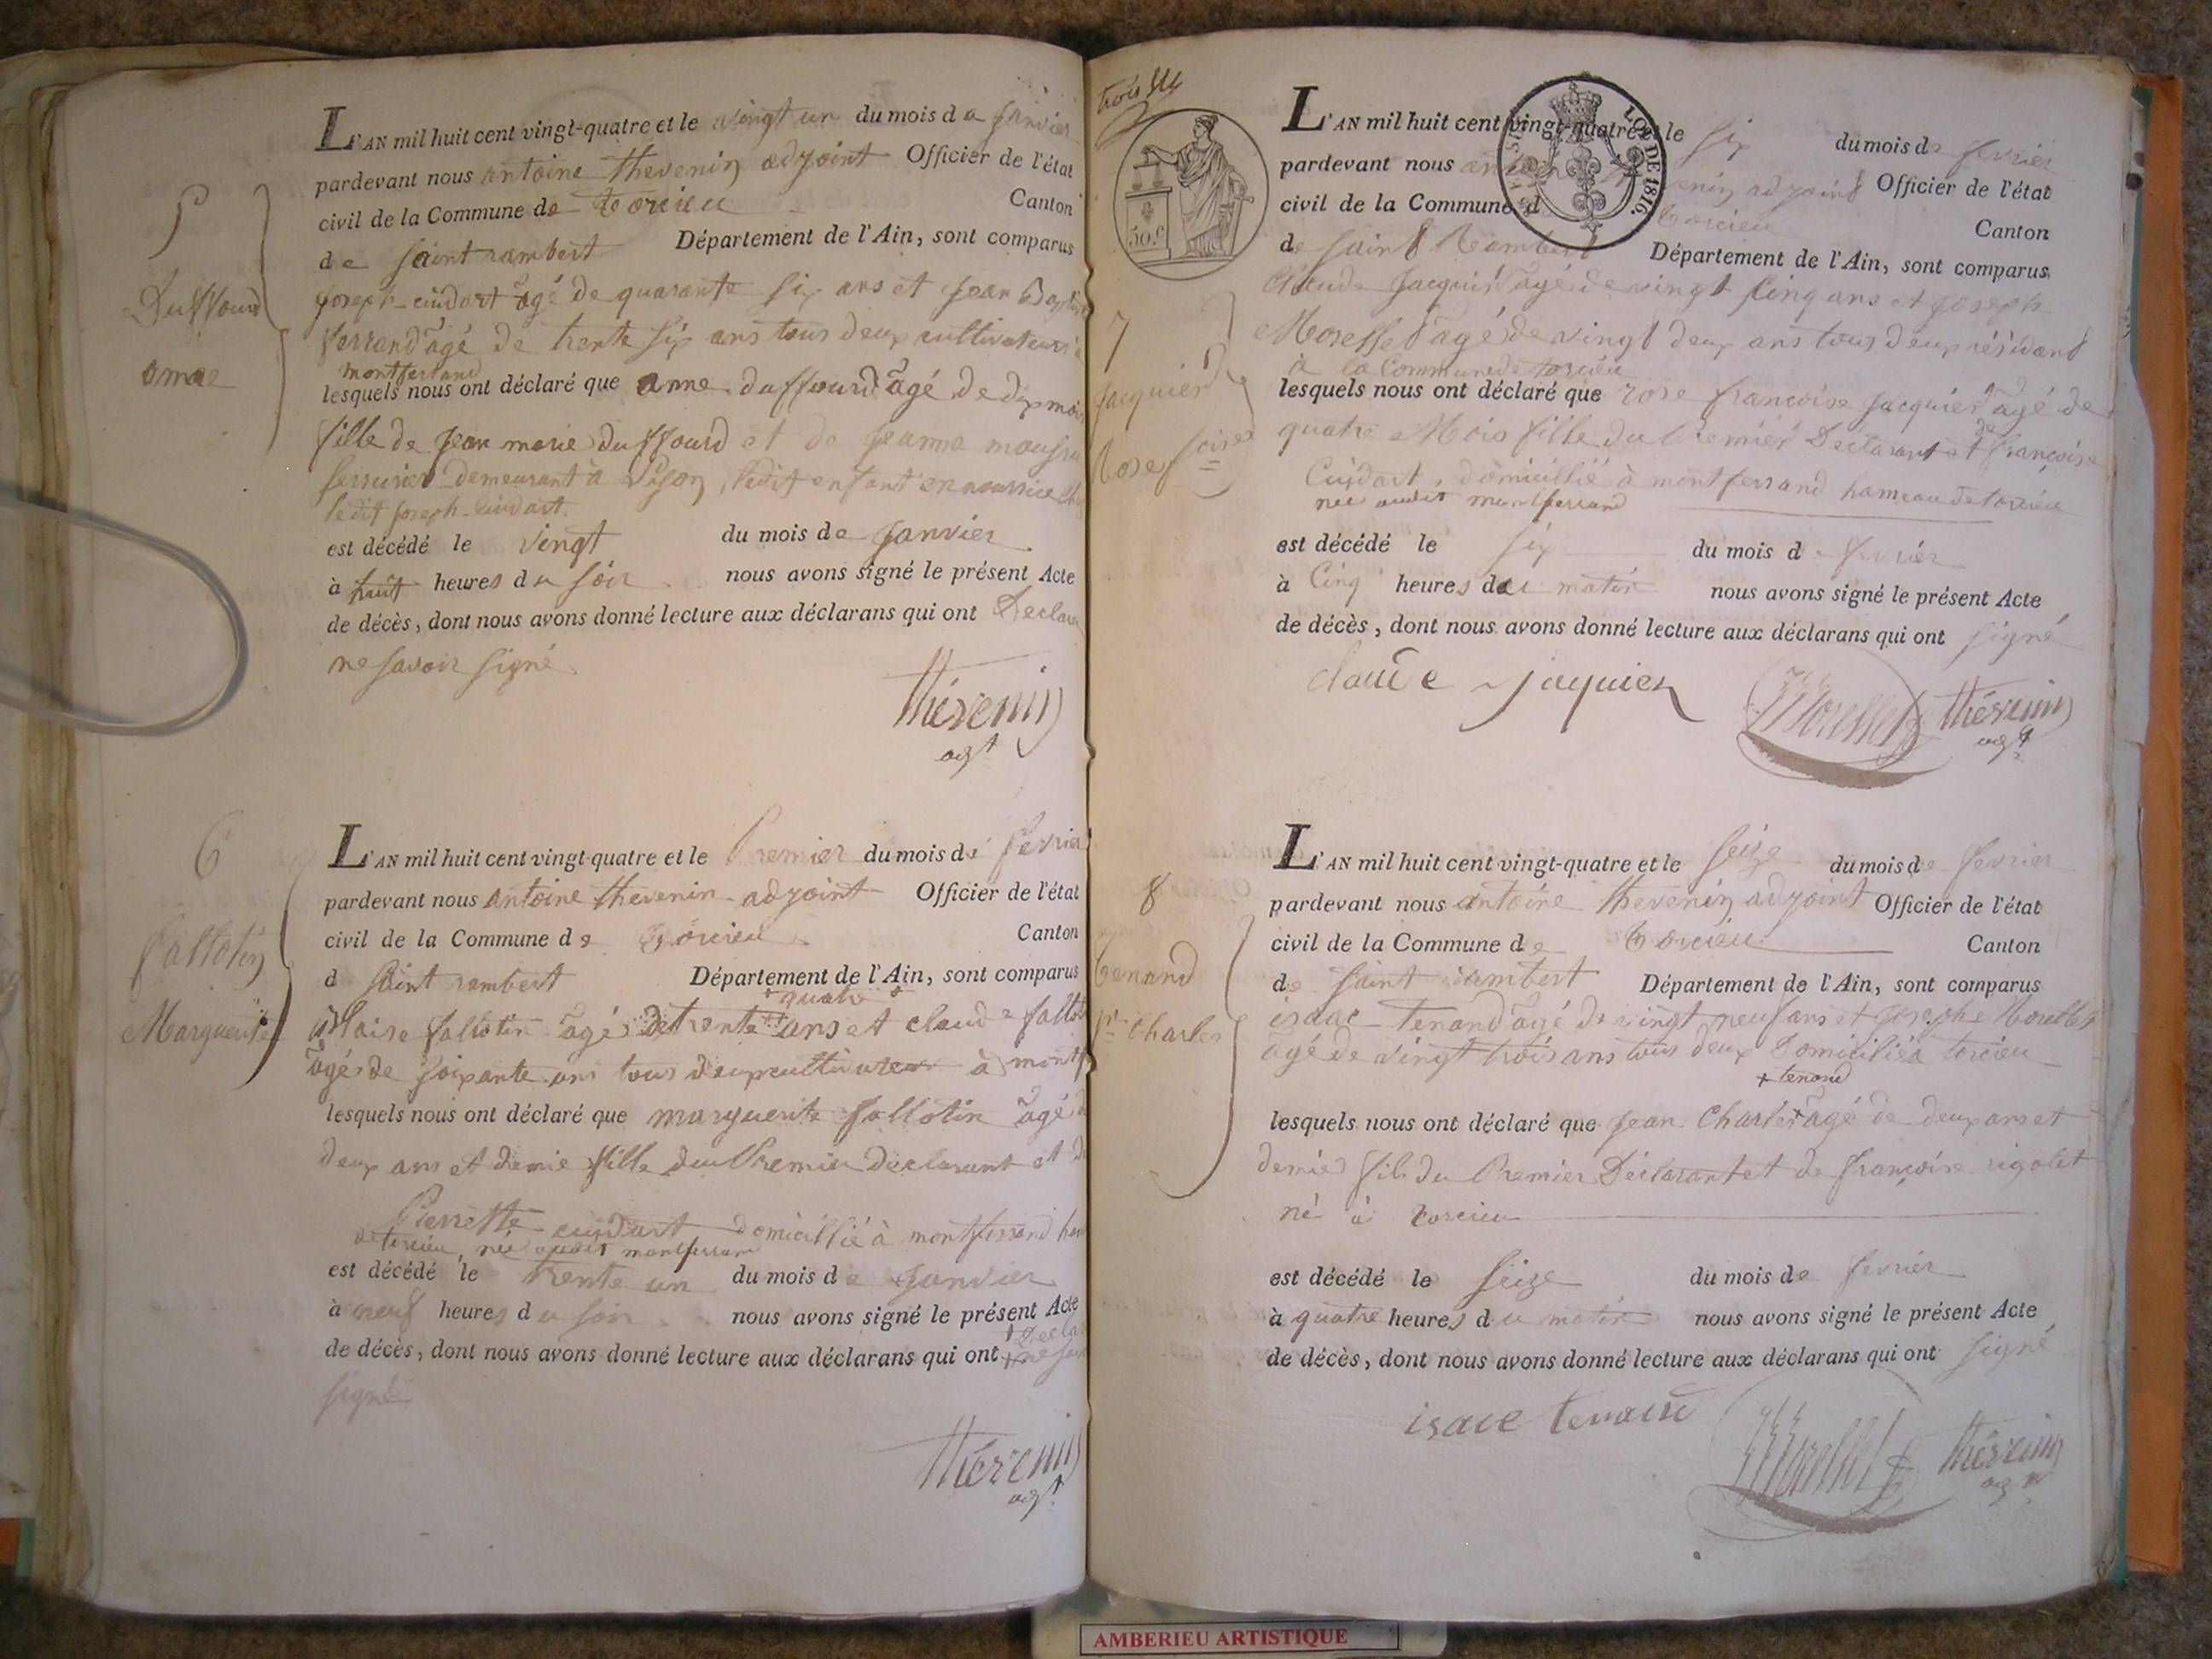 5
Duffourd
anne
L'AN mil huit cent vingt-quatre et le vingt un du mois de Janvier
pardevant nous antoine thevenin adjoint Officier de l'état
civil de la Commune de torcieu Canton
de saint rambert Département de l'Ain, sont comparus
joseph cuidart agé de quarante six ans et jean Baptiste
ferrand agé de trente six ans tous deux cultivateurs à
montferrand
lesquels nous ont déclaré que anne duffourd agé de dix mois
fille de jean marie duffourd et de jeanne
serrurier demeurant à Lyon, ledit enfant en nourrice chez
ledit joseph cuidart.
est décédé le vingt du mois de janvier
à huit heures du soir nous avons signé le présent Acte
de décès, dont nous avons donné lecture aux déclarans qui ont Déclaré
ne savoir signé
thévenin
adjt
6
fallotin
Marguerite
L'AN mil huit cent vingt-quatre et le Premier du mois de fevrier
pardevant nous antoine thevenin adjoint Officier de l'état
civil de la Commune de torcieu Canton
d saint rambert Département de l'Ain, sont comparus
+ quatre +
Blaise fallotin agé de trente ++ ans et claude fallotin
agé de soixante ans tous deux cultivateur à montf
lesquels nous ont déclaré que marguerite fallotin agé de
deux ans et demie fille du Premier declarant et de
Pierrette cuidart domicillié à montferrand ham
de torcieu, née audit montferrand
est décédé le trente un du mois de janvier
à neuf heures du soir nous avons signé le présent Acte
+ Decla
de décès, dont nous avons donné lecture aux déclarans qui ont + ne sav
signé
thévenin
adjt
trois
50.c
LOI DE 1816.
7
jacquier
Rose francoise
L'AN mil huit cent vingt-quatre et le six du mois de fevrier
pardevant nous antoine thevenin adjoint Officier de l'état
civil de la Commune de torcieu Canton
de saint Rambert Département de l'Ain, sont comparus
Claude jacquier agé de vingt cinq ans et joseph
Moresset agé de vingt deux ans tous deux résidant
à la Commune de torcieu
lesquels nous ont déclaré que rose francoise jacquier agé de
quatre Mois fille du Premier Declarant et de françoise
Cuidart, domicillié à montferrand hameau de torcieu
née audit montferrand
est décédé le six du mois d fevrier
à Cinq heures du matin nous avons signé le présent Acte
de décès, dont nous avons donné lecture aux déclarans qui ont signé
claude jaquier Moresset thévenin
adjt
8
tenand
jn Charles
L'AN mil huit cent vingt-quatre et le seize du mois de fevrier
pardevant nous antoine thevenin adjoint Officier de l'état
civil de la Commune de torcieu Canton
de saint rambert Département de l'Ain, sont comparus
isaac tenand agé de vingt neuf ans et joseph Moresset
agé de vingt trois ans tous deux Domicilié à torcieu
+ tenand
lesquels nous ont déclaré que jean Charles + agé de deux ans et
demie fils du Premier Déclarant et de françoise rigolet
né à torcieu
est décédé le seize du mois de fevrier
à quatre heures du matin nous avons signé le présent Acte
de décès, dont nous avons donné lecture aux déclarans qui ont signé
isace tenand Moresset thévenin
adjt
AMBERIEU ARTISTIQUE